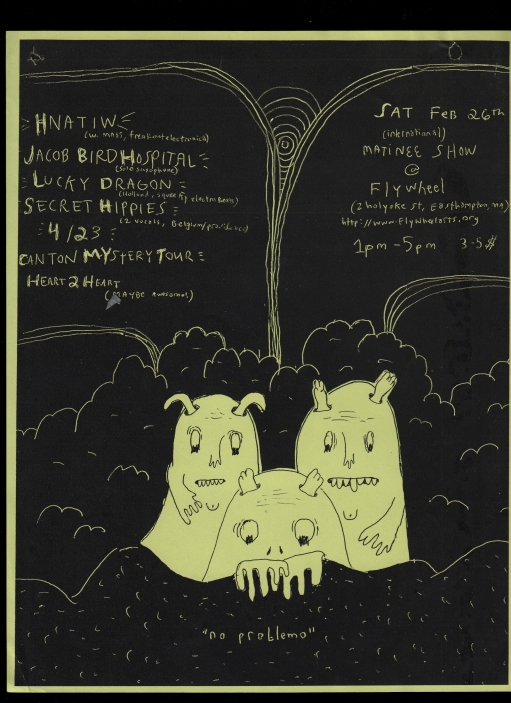 HNATIW
(w. mass, freakout electronica)
JACOB BIRD HOSPITAL
(solo saxophone)
LUCKY DRAGON
(Holland, electro Beats)
SECRET HIPPIES
(2 vocals, Belgium/providence)
4/23
CANTON MYSTERY TOUR
HEART 2 HEART
(MAYBE awesome)
SAT FEB 26th
(international)
MATINEE SHOW
@
Flywheel
(2 holyoke st, Easthampton, MA)
http://www.flywheelarts.org
1pm - 5pm 3-5$
"no problemo"